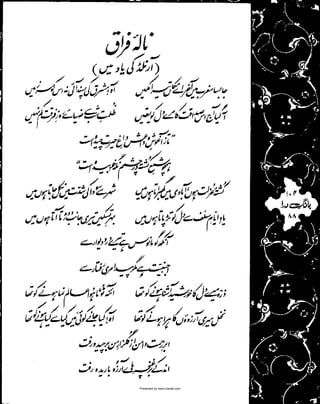 نالۂ فراق
(آرنلڈ کی یاد میں)
جا بسا مغرب میں آخر اے مکاں تیرا مکیں آہ! مشرق کی پسند آئی نہ اس کو سرزمیں
آ گیا آج اس صداقت کا مرے دل کو یقیں ظلمتِ شب سے ضیائے روزِ فرقت کم نہیں
"تا ز آغوشِ وداعش داغِ حیرت چیدہ است
ہمچو شمعِ کشتہ در چشمم نگہ خوابیدہ است"
کشتۂ عزلت ہوں، آبادی میں گھبراتا ہوں میں شہر سے سودا کی شدت میں نکل جاتا ہوں میں
یادِ ایامِ سلف سے دل کو تڑپاتا ہوں میں بہرِ تسکیں تیری جانب دوڑتا آتا ہوں میں
آنکھ گو مانوس ہے تیرے در و دیوار سے
اجنبیت ہے مگر پیدا مری رفتار سے
ذرہ میرے دل کا خورشید آشنا ہونے کو تھا آئنہ ٹوٹا ہوا عالم نما ہونے کو تھا
نخل میری آرزوؤں کا ہرا ہونے کو تھا آہ! کیا جانے کوئی میں کیا سے کیا ہونے کو تھا
ابرِ رحمت دامن از گلزارِ من برچید و رفت
اندکے بر غنچہ ہائے آرزو بارید و رفت
۱۰۴
بانگِ درا
۸۸
Presented by www.ziaraat.com